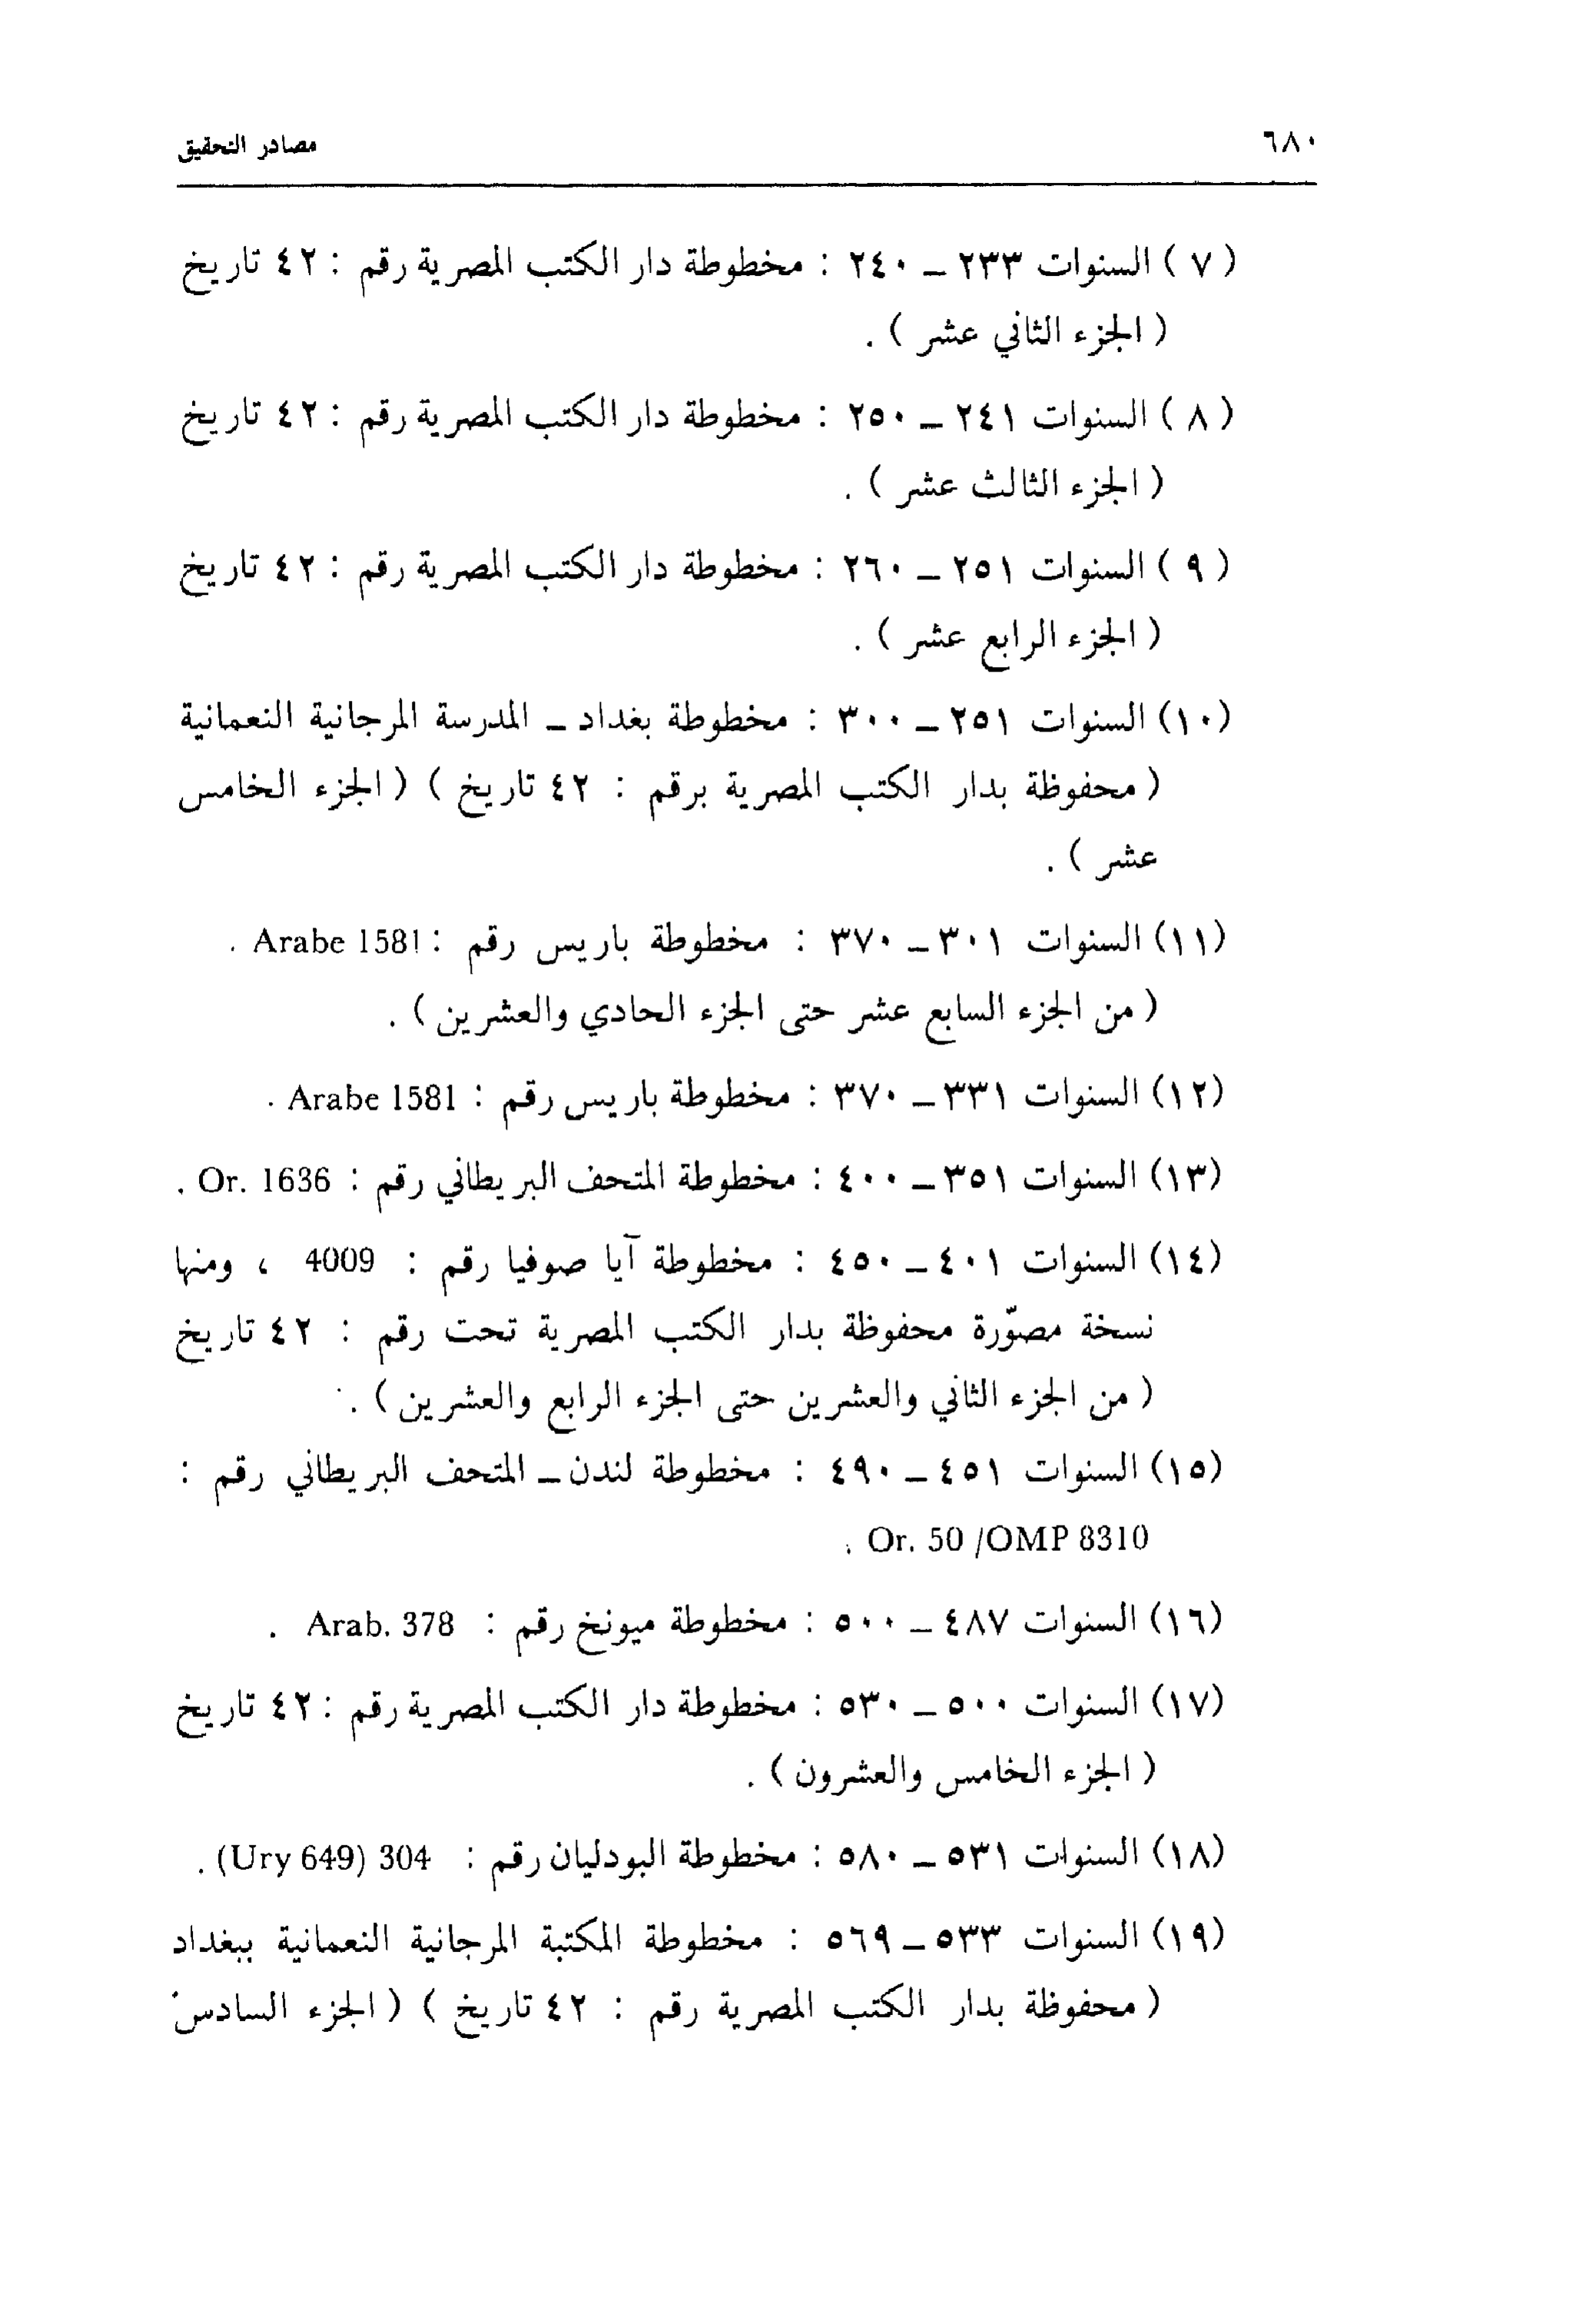 ٦٨٠ مصادر التحقيق
( ٧ ) السنوات ٢٣٣ – ٢٤٠ : مخطوطة دار الكتب المصرية رقم : ٤٢ تاريخ
( الجزء الثاني عشر ) .
( ٨ ) السنوات ٢٤١ – ٢٥٠ : مخطوطة دار الكتب المصرية رقم : ٤٢ تاريخ
( الجزء الثالث عشر ) .
( ٩ ) السنوات ٢٥١ – ٢٦٠ : مخطوطة دار الكتب المصرية رقم : ٤٢ تاريخ
( الجزء الرابع عشر ) .
(١٠) السنوات ٢٥١ – ٣٠٠ : مخطوطة بغداد – المدرسة المرجانية النعمانية
( محفوظة بدار الكتب المصرية برقم : ٤٢ تاريخ ) ( الجزء الخامس
عشر ) .
(١١) السنوات ٣٠١ – ٣٧٠ : مخطوطة باريس رقم : Arabe 1581 .
( من الجزء السابع عشر حتى الجزء الحادي والعشرين ) .
(١٢) السنوات ٣٣١ – ٣٧٠ : مخطوطة باريس رقم : Arabe 1581 .
(١٣) السنوات ٣٥١ – ٤٠٠ : مخطوطة المتحف البريطاني رقم : Or. 1636 .
(١٤) السنوات ٤٠١ – ٤٥٠ : مخطوطة آيا صوفيا رقم : 4009 ، ومنها
نسخة مصوّرة محفوظة بدار الكتب المصرية تحت رقم : ٤٢ تاريخ
( من الجزء الثاني والعشرين حتى الجزء الرابع والعشرين ) .
(١٥) السنوات ٤٥١ – ٤٩٠ : مخطوطة لندن – المتحف البريطاني رقم :
Or. 50 /OMP 8310 .
(١٦) السنوات ٤٨٧ – ٥٠٠ : مخطوطة ميونخ رقم : Arab. 378 .
(١٧) السنوات ٥٠٠ – ٥٣٠ : مخطوطة دار الكتب المصرية رقم : ٤٢ تاريخ
( الجزء الخامس والعشرون ) .
(١٨) السنوات ٥٣١ – ٥٨٠ : مخطوطة البودليان رقم : 304 (Ury 649) .
(١٩) السنوات ٥٣٣ – ٥٦٩ : مخطوطة المكتبة المرجانية النعمانية ببغداد
( محفوظة بدار الكتب المصرية رقم : ٤٢ تاريخ ) ( الجزء السادس